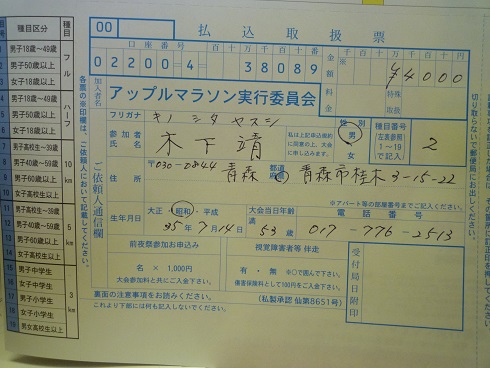 00 払込取扱票
口座番号 百十万千百十番
02200-4-38089
金額 千百十万千百十円
※ ¥4000
料金 特殊取扱
加入者名 アップルマラソン実行委員会
フリガナ キノシタヤスシ
参加者氏名 木下 靖
私は上記申込規約に同意の上、大会に申し込みます。
性別 男 女
種目番号 (左表参照) 1~19で記入 2
〒030-0844
青森 都道府県 青森市桂木3-15-22
※アパート等の部屋番号までご記入ください。
生年月日 大正・昭和・平成 35年7月14日
大会当日年齢 満53歳
電話番号 017-776-2513
前夜祭参加お申込み
名 × 1,000円
大会参加料と共にご入金下さい。
視覚障害者等 伴走
有・無 ※○で囲んで下さい。
傷害保険料として100円をご入金下さい。
受付局日附印
裏面の注意事項をお読みください。
(私製承認 仙第8651号)
これより下部には何も記入しないでください。
ご依頼人・通信欄
各票の※印欄は、ご依頼人において記載してください。
切り取らないで郵便局にお出しください。
種目区分 種目
男子18歳~49歳
男子50歳以上
女子18歳以上
フル
4 男子18歳~49歳
5 男子50歳以上
6 女子18歳以上
ハーフ
7 男子高校生~39歳
8 男子40歳~59歳
9 男子60歳以上
10 女子高校生以上
10km
11 男子高校生~39歳
12 男子40歳~59歳
13 男子60歳以上
14 女子高校生以上
5km
15 男子中学生
16 女子中学生
17 男子小学生
18 女子小学生
19 男女高校生以上
3km